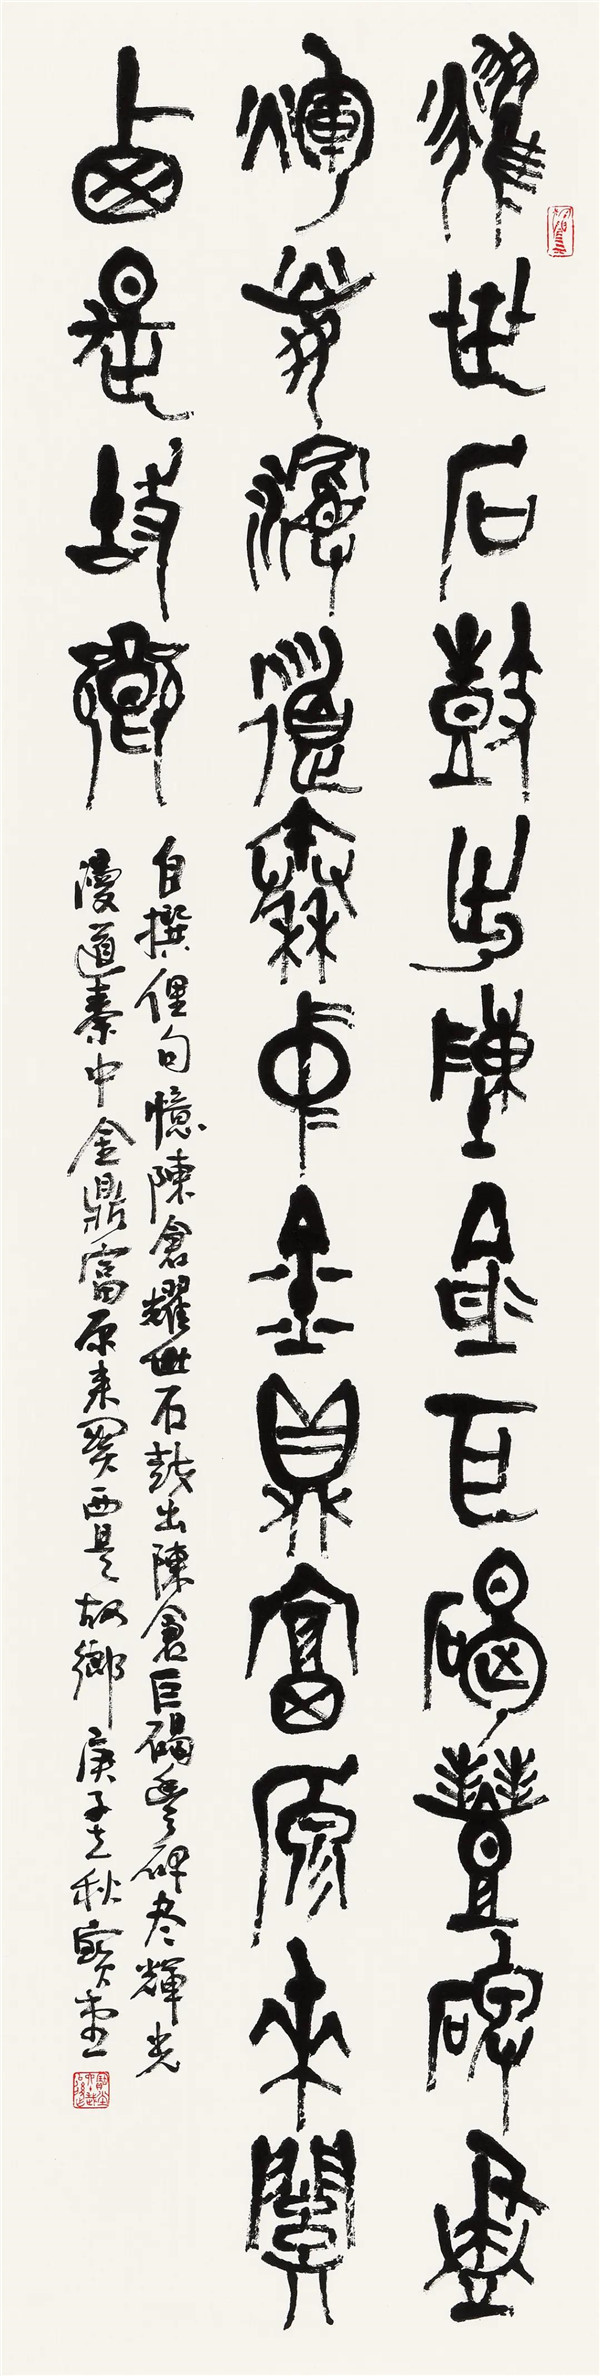 耀世石鼓出陳倉巨碣豐碑盡
煇光漫道秦中金鼎富原來關
西是故鄉
自撰俚句憶陳倉耀世石鼓出陳倉巨碣豐碑尽輝光
漫道秦中金鼎富原来関西是故鄉庚子之秋寶